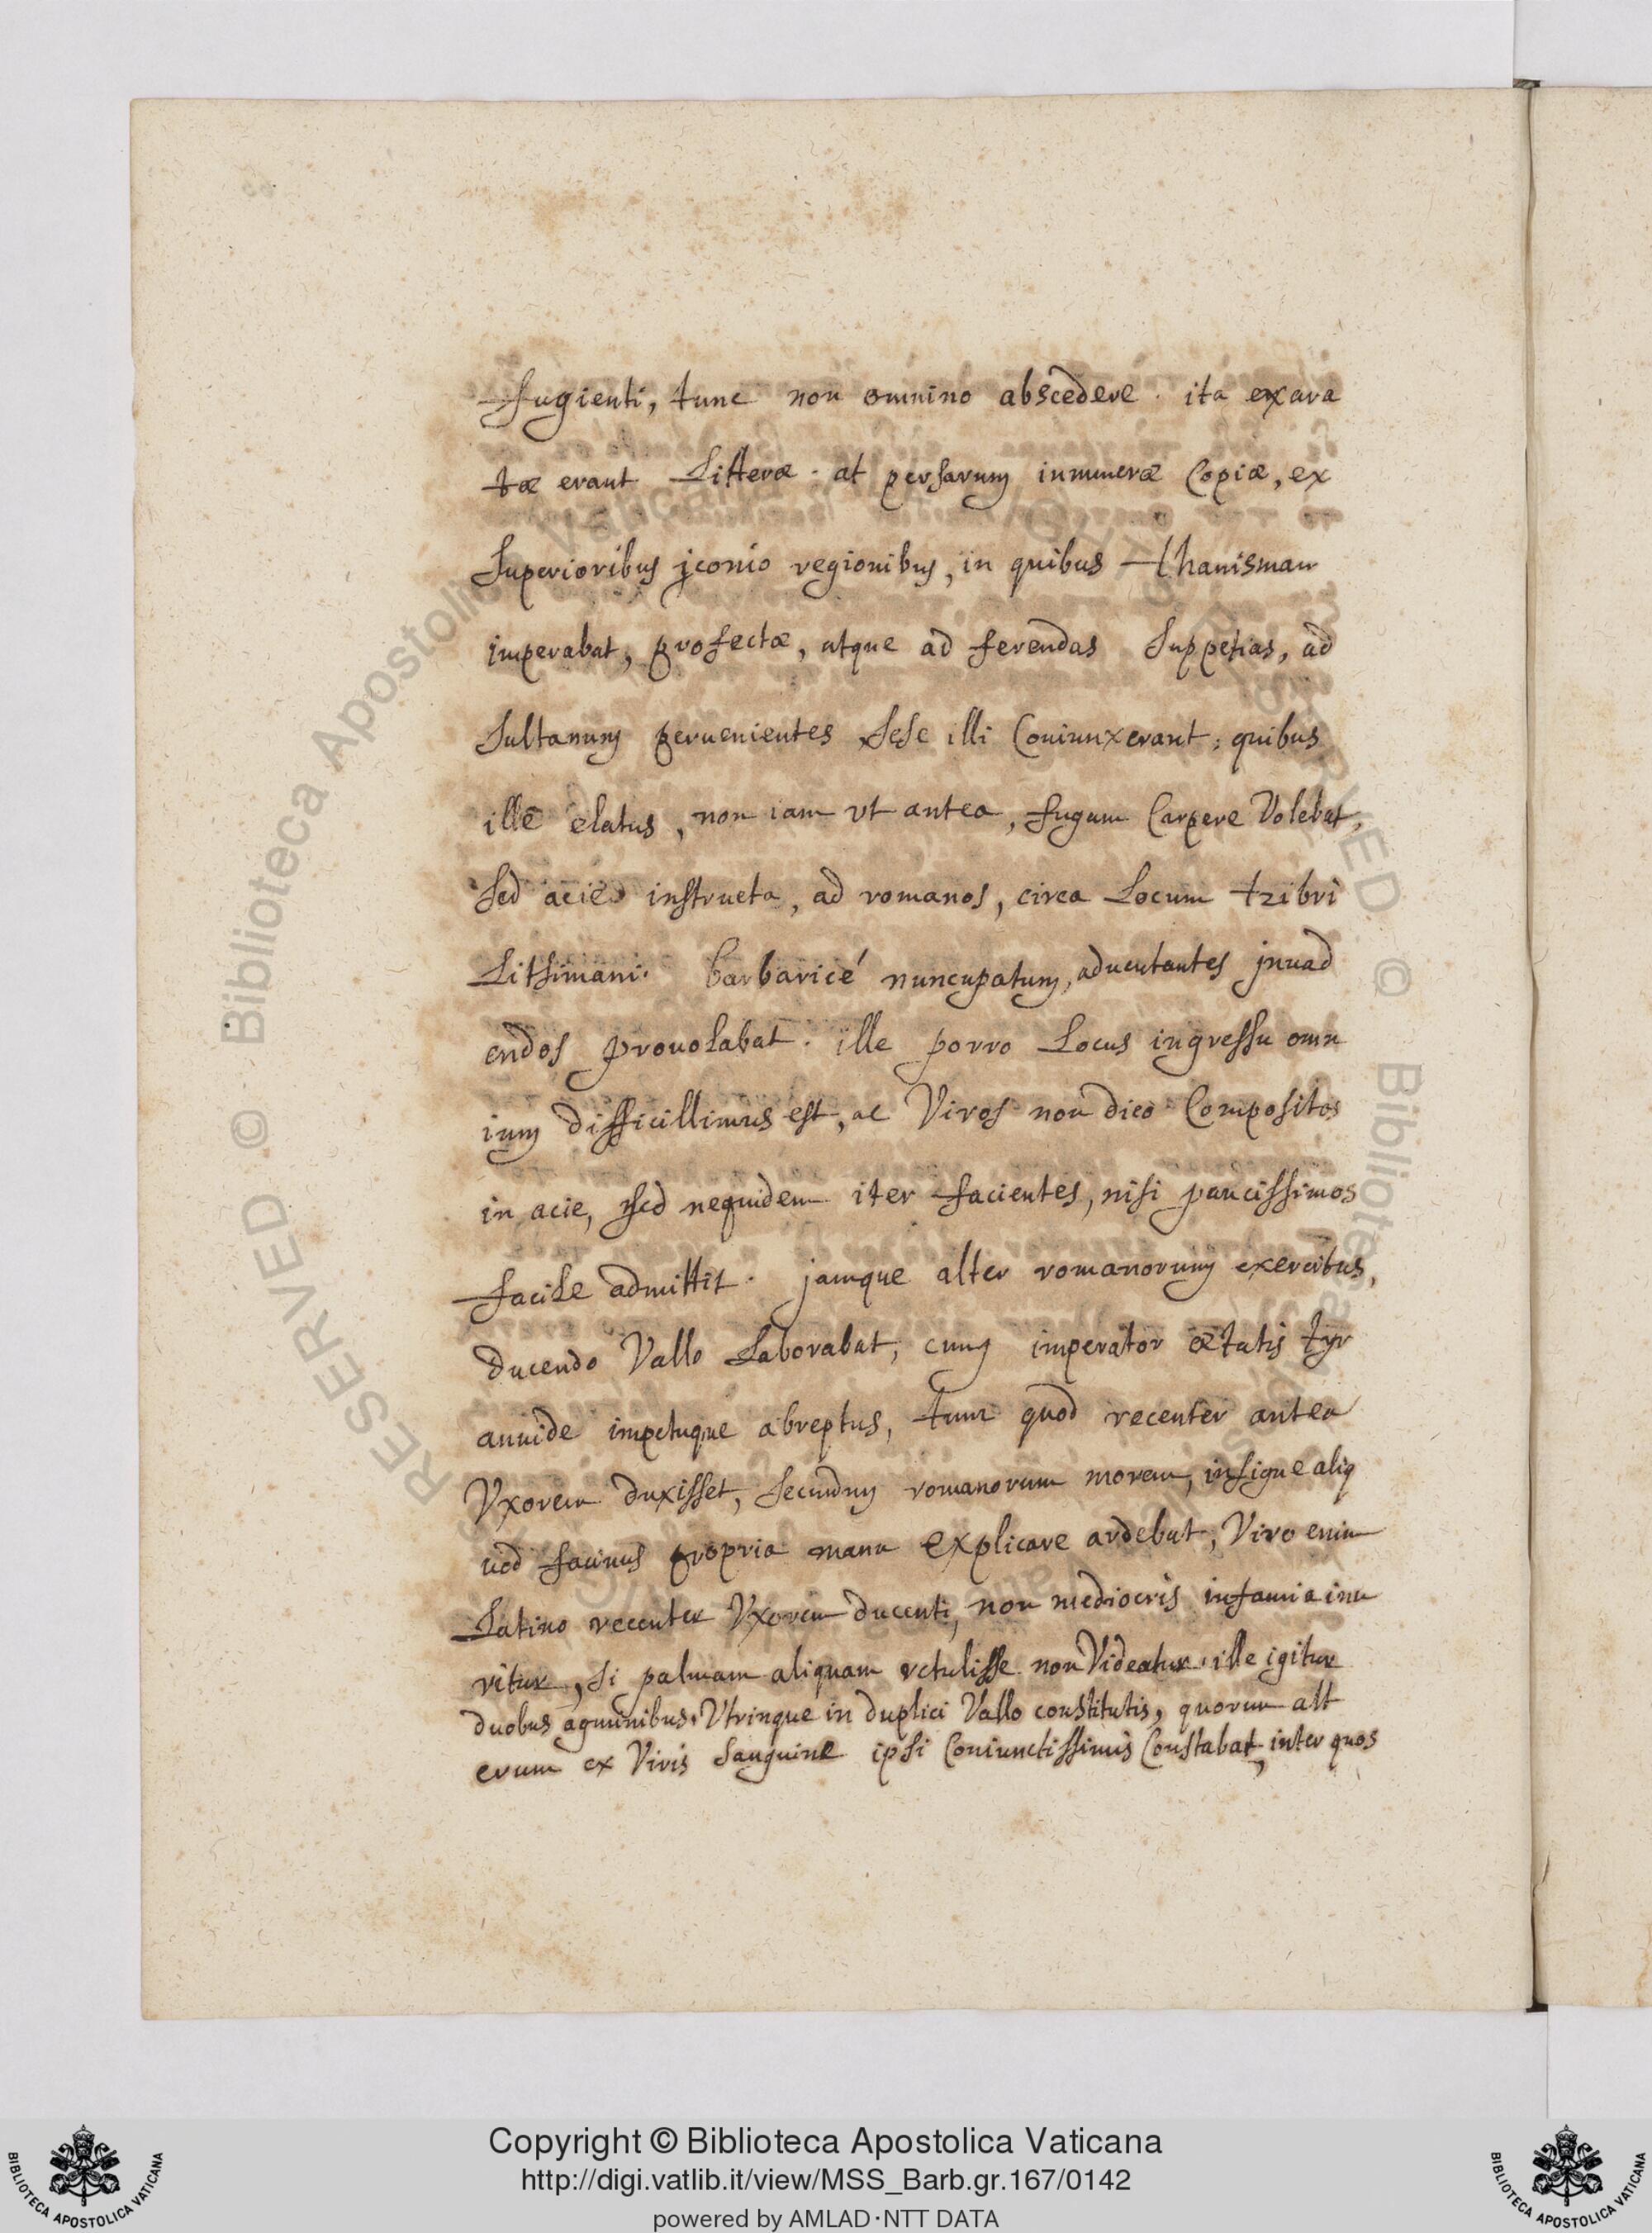 fugienti, tunc non omnino abscedere. ita exara
tæ erant Litteræ. at persarum innumeræ Copiæ, ex
Superioribus jconio regionibus, in quibus thanisman
imperabat, profectæ, atque ad ferendas Suppetias, ad
Sultanum peruenientes Sese illi Coniunxerant; quibus
ille elatus, non iam vt antea, fugam Carpere Volebat,
Sed acie instructa, ad romanos, circa Locum tzibri
Litsimani. barbaricé nuncupatum, aduentantes jnuad
endos prouolabat. ille porro Locus ingressu omn
ium difficillimus est, ac Viros non dico Compositos
in acie, sed nequidem iter facientes, nisi paucissimos
facile admittit. jamque alter romanorum exercitus,
ducendo Vallo Laborabat; cum imperator ætatis tyr
annide impetuque abreptus, tum quod recenter antea
Vxorem duxisset, Secundum romanorum morem, insigne aliq
uod facinus propria manu explicare ardebat; Viro enim
Latino recenter Vxorem ducenti, non mediocris infamia inu
ritur, Si palmam aliquam retulisse non Videatur. ille igitur
duobus agminibus, Vtrinque in duplici Vallo constitutis, quorum alt
erum ex Viris Sanguine ipsi Coniunctissimis Constabat, inter quos
RESERVED © Biblioteca Apostolica Vaticana
Copyright © Biblioteca Apostolica Vaticana
http://digi.vatlib.it/view/MSS_Barb.gr.167/0142
powered by AMLAD·NTT DATA
BIBLIOTECA APOSTOLICA VATICANA
BIBLIOTECA APOSTOLICA VATICANA